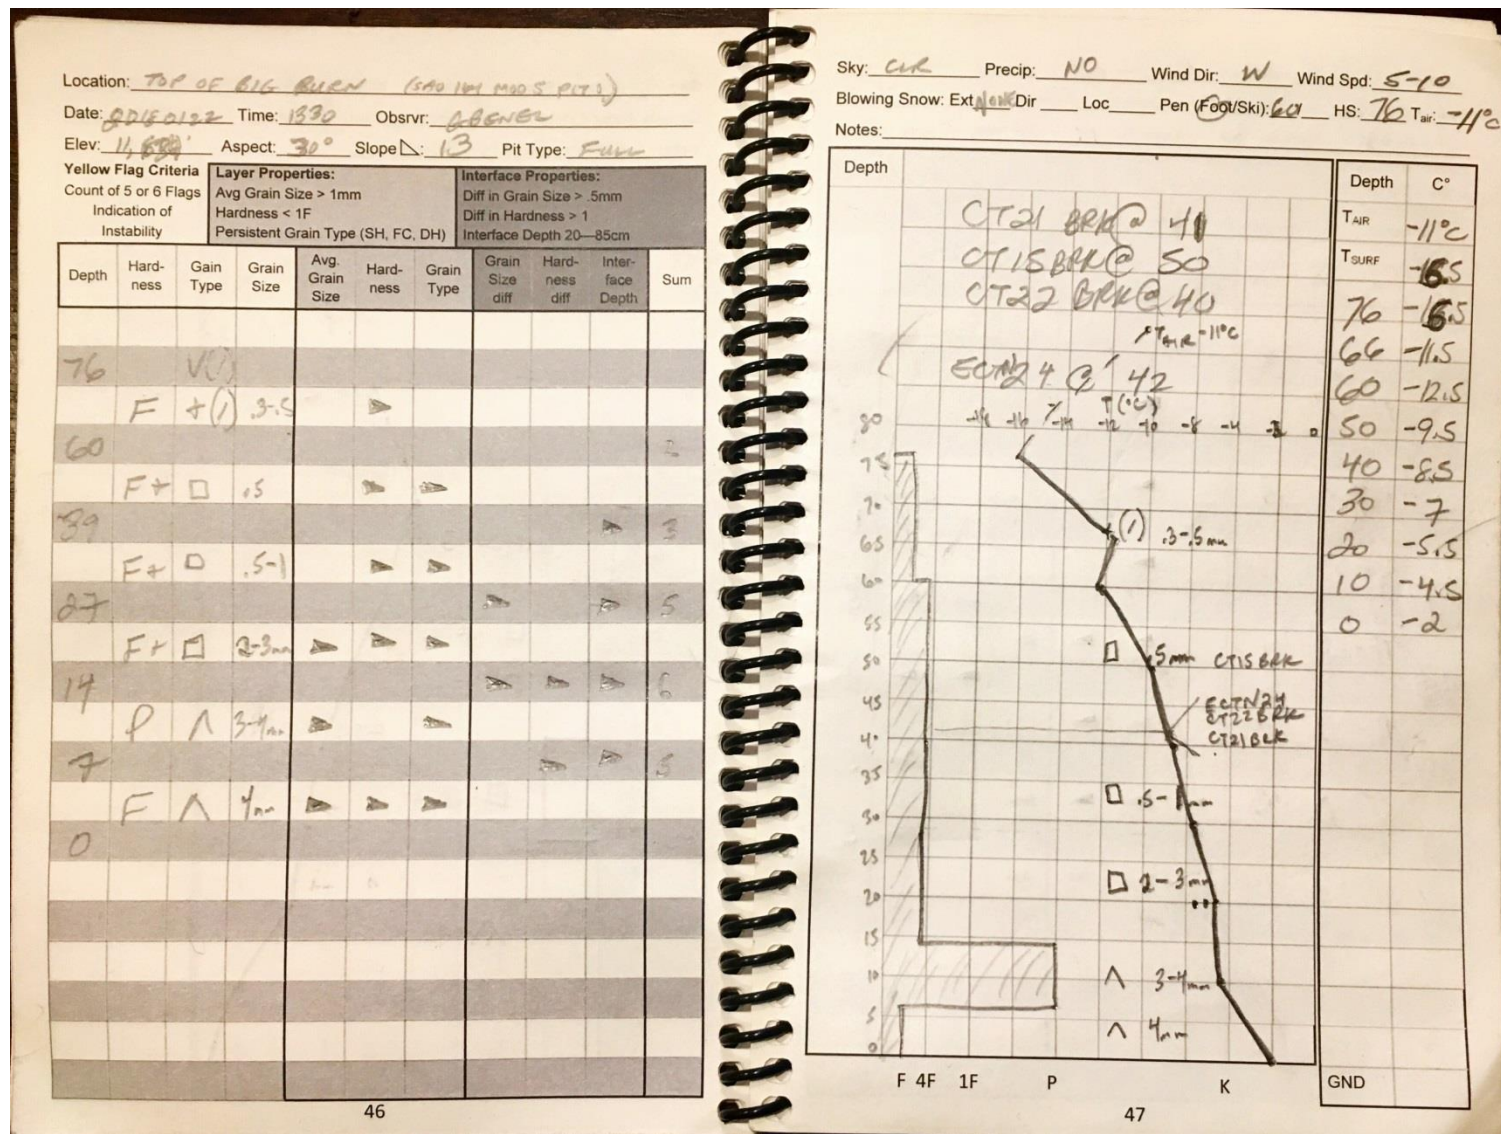 Location: TOP OF BIG BURN (SAO 141 MOD 5 PIT 1)
Date: 20180122 Time: 1330 Obsrvr: GBENEL
Elev: Aspect: 30° Slope: 13 Pit Type: FULL
Yellow Flag Criteria
Count of 5 or 6 Flags
Indication of
Instability
Layer Properties:
Avg Grain Size > 1mm
Hardness < 1F
Persistent Grain Type (SH, FC, DH)
Interface Properties:
Diff in Grain Size > .5mm
Diff in Hardness > 1
Interface Depth 20—85cm
Depth Hard-ness Gain Type Grain Size Avg. Grain Size Hard-ness Grain Type Grain Size diff Hard-ness diff Inter-face Depth Sum
76 V
F +(/) .3-.5
60 2
F+ □ .5
39 3
F+ □ .5-1
27 5
F+ □ 2-3mm
14 6
P ∧ 3-4mm
7 5
F ∧ 4mm
0
46
Sky: CLR Precip: NO Wind Dir: W Wind Spd: 5-10
Blowing Snow: Ext NONE Dir Loc Pen (Foot/Ski): 60 HS: 76 Tair: -11°C
Notes:
Depth
CT21 BRK@ 41
CT15 BRK@ 50
CT22 BRK@ 40
TAIR -11°C
ECTN24 @ 42
T(°C)
80 -18 -16 -14 -12 -10 -8 -6 -4 -2 0
75
70
(/) .3-.5mm
65
60
55
50 □ .5mm CT15 BRK
45 ECTN24
CT22 BRK
40 CT21 BRK
35
□ .5-1mm
30
25
□ 2-3mm
20
15
10 ∧ 3-4mm
5 ∧ 4mm
0
F 4F 1F P K
Depth C°
TAIR -11°C
TSURF -16.5
76 -16.5
66 -11.5
60 -12.5
50 -9.5
40 -8.5
30 -7
20 -5.5
10 -4.5
0 -2
GND
47